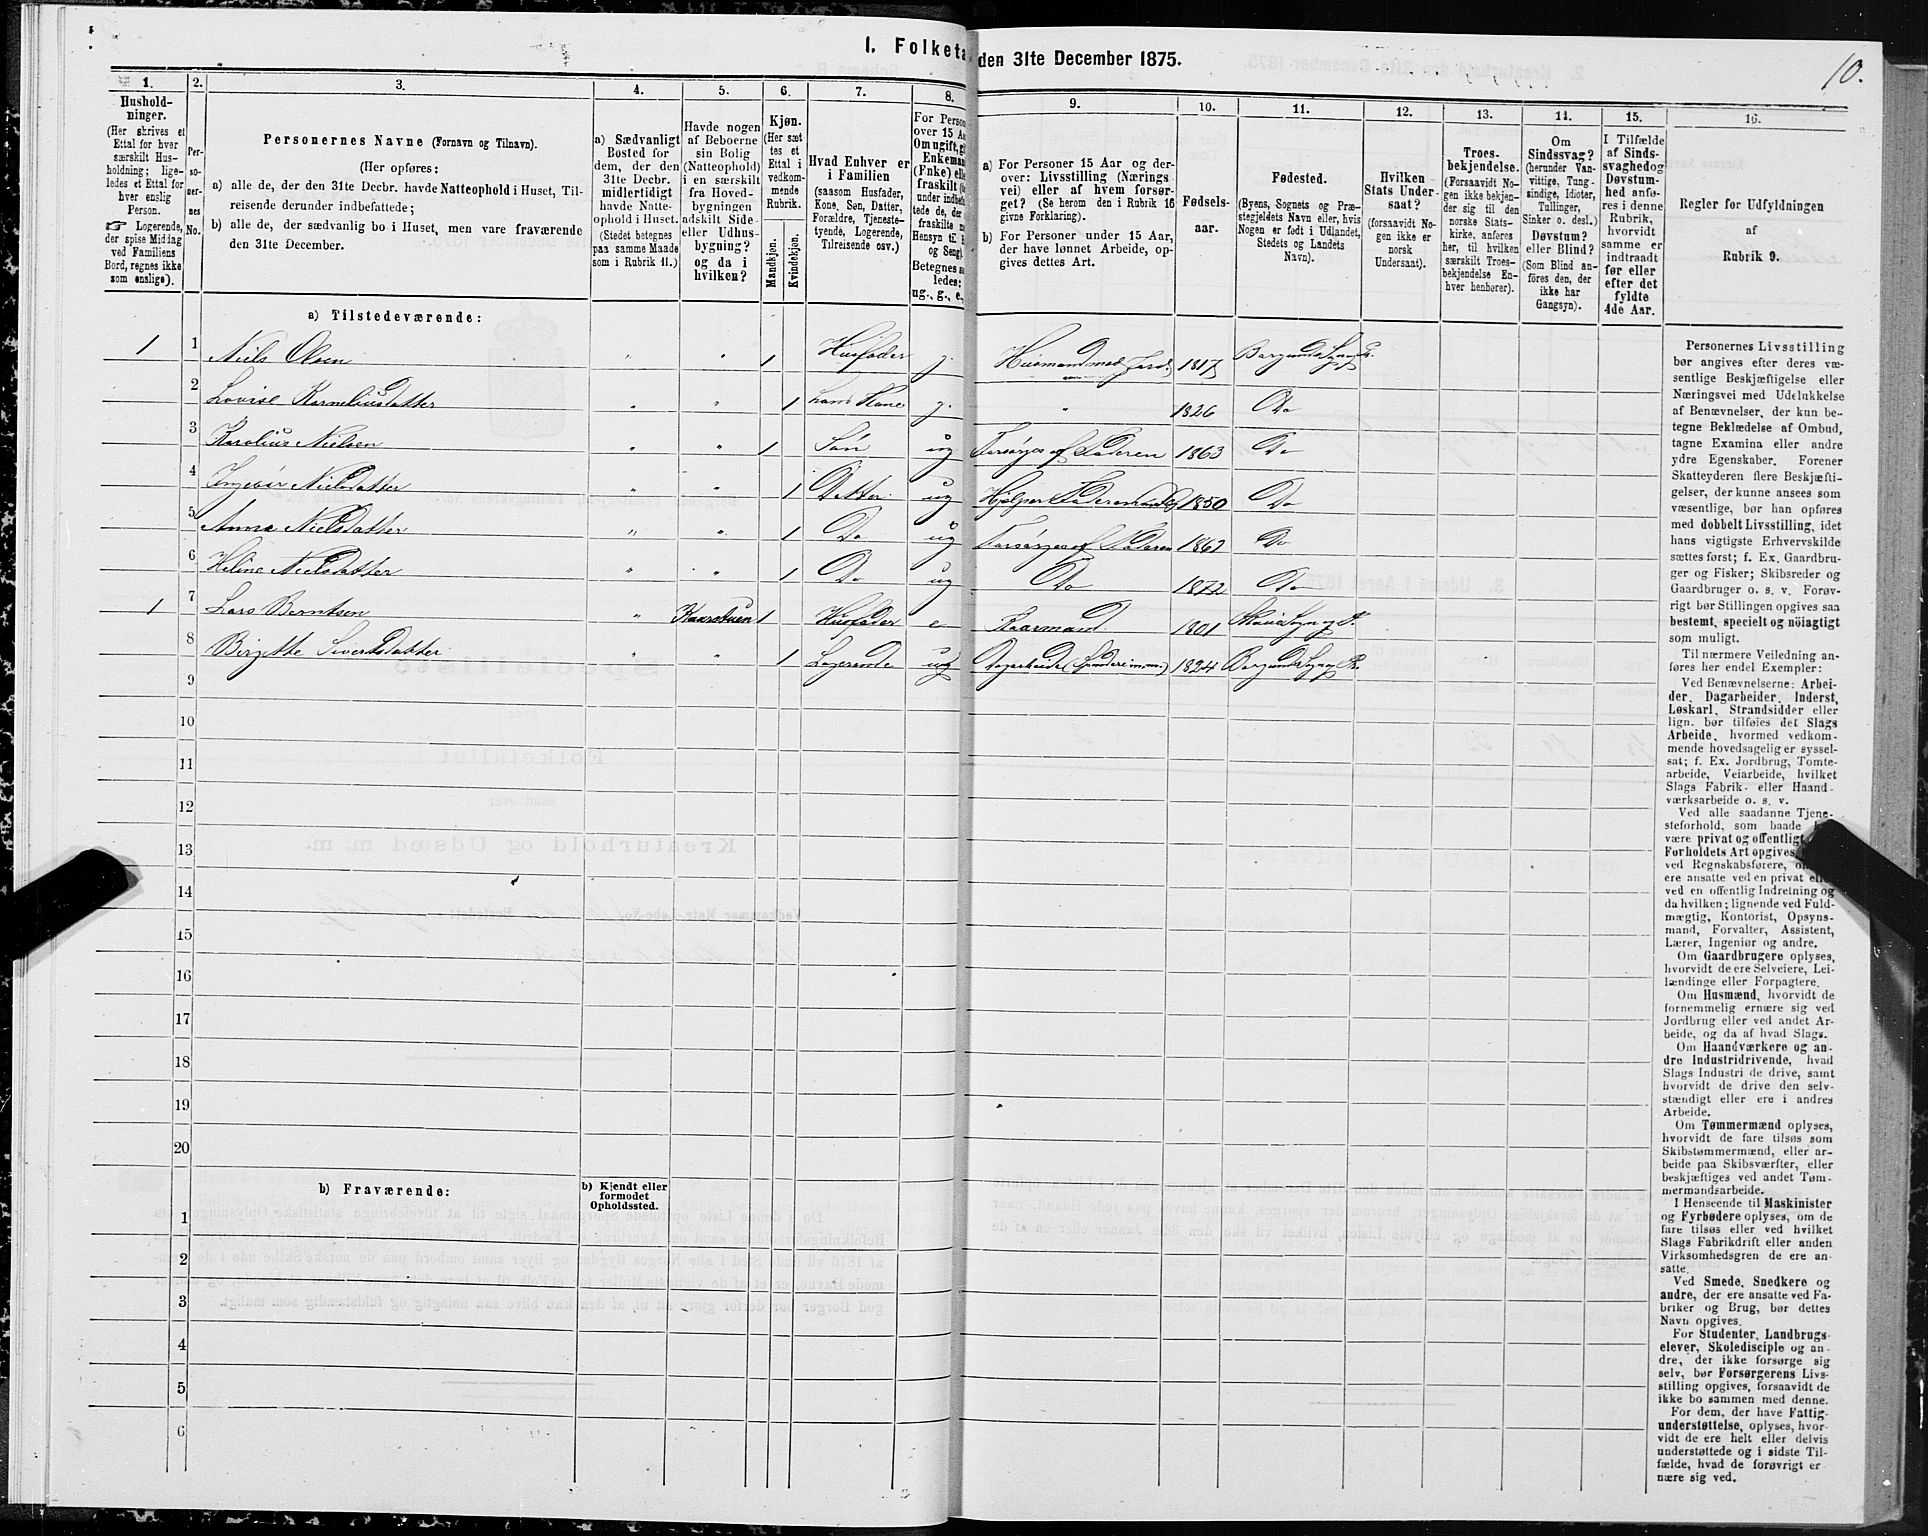 I. Folketa den 31te December 1875.
10.
1.
Hushold-
ninger.
(Her skrives et
Ettal for hver
særskilt Hus-
holdning; lige-
ledes et Ettal for
hver enslig
Person.
☞ Logerende,
der spise Middag
ved Familiens
Bord, regnes ikke
som enslige).
2.
Per-
so-
ner-
nes
No.
3.
Personernes Navne (Fornavn og Tilnavn).
(Her opføres:
a) alle de, der den 31te Decbr. havde Natteophold i Huset, Til-
reisende derunder indbefattede;
b) alle de, der sædvanlig bo i Huset, men vare fraværende
den 31te December.
4.
a) Sædvanligt
Bosted for
dem, der den
31te Decbr.
midlertidigt
havde Natte-
ophold i Huset.
(Stedet betegnes
paa samme Maade
som i Rubrik 11.)
5.
Havde nogen
af Beboerne
sin Bolig
(Natteophold)
i en særskilt
fra Hoved-
bygningen
adskilt Side-
eller Udhus-
bygning?
og da i
hvilken?
6.
Kjøn.
(Her sæt
tes et
Ettal i
vedkom-
mende
Rubrik.
Mandkjøn.
Kvindekjøn.
7.
Hvad Enhver er
i Familien
(saasom Husfader,
Kone, Søn, Datter,
Forældre, Tjeneste-
tyende, Logerende,
Tilreisende osv.)
8.
For Person
over 15 Aa
Om ugift, gi
Enkeman
(Enke) elle
fraskilt (se
under indbefat
tede de, der e
fraskilte m
Hensyn til B
og Seng).
Betegnes saa
ledes:
ug., g., e.,
9.
a) For Personer 15 Aar og der-
over: Livsstilling (Nærings
vei) eller af hvem forsør-
get? (Se herom den i Rubrik 16
givne Forklaring).
b) For Personer under 15 Aar,
der have lønnet Arbeide, op-
gives dettes Art.
10.
Fødsels-
aar.
11.
Fødested.
(Byens, Sognets og Præ-
stegjeldets Navn eller, hvis
Nogen er født i Udlandet,
Stedets og Landets
Navn).
12.
Hvilken
Stats Under-
saat?
(forsaavidt No-
gen ikke er
norsk
Undersaat).
13.
Troes-
bekjendelse.
(Forsaavidt No-
gen ikke bekjen-
der sig til den
norske Stats-
kirke, anføres
her, til hvilken
særskilt Troes-
bekjendelse En-
hver henhører).
14.
Om
Sindssvag?
(herunder Van-
vittige, Tung-
sindige, Idioter,
Tullinger,
Sinker o. desl.)
Døvstum?
eller Blind?
(Som Blind an-
føres den, der
ikke har
Gangsyn).
15.
I Tilfælde
af Sinds-
svaghed og
Døvstum-
hed anfø-
res i denne
Rubrik,
hvorvidt
samme er
indtraadt
før eller
efter det
fyldte
4de Aar.
16.
Regler for Udfyldningen
af
Rubrik 9.
a) Tilstedeværende:
1 1 Niels Olsen „ „ 1 Husfader g. Husmand med Jord 1817 Borgunds Sogn og Pr.
2 Lovise Korneliusdatter „ „ 1 hans Kone g. „ 1826 Do
3 Karolius Nielsen „ „ 1 Søn ug Forsørges af Faderen 1863 Do
4 Ingebor Nielsdatter „ „ 1 Datter ug Hjelper Faderen 1850 Do
5 Anna Nielsdatter „ „ 1 Do ug Forsørges af Faderen 1862 Do
6 Heline Nielsdatter „ „ 1 Do ug Do 1872 Do
1 7 Lars Berntsen „ Kaarstuen 1 Husfader e Kaarmand 1801 Sogn og P.
8 Birgitte Sivertsdatter „ „ 1 Logerende ug Dagarbeide 1824 Borgunds Sogn og Pr.
9
10
11
12
13
14
15
16
17
18
19
20
b) Fraværende:
b) Kjendt eller
formodet
Opholdssted.
1
2
3
4
5
6
Personernes Livsstilling
bør angives efter deres væ-
sentlige Beskjæftigelse eller
Næringsvei med Udelukkelse
af Benævnelser, der kun be-
tegne Beklædelse af Ombud,
tagne Examina eller andre
ydre Egenskaber. Forener
Skatteyderen flere Beskjæfti-
gelser, der kunne ansees som
væsentlige, bør han opføres
med dobbelt Livsstilling, idet
hans vigtigste Erhvervskilde
sættes først; f. Ex. Gaardbru-
ger og Fisker; Skibsreder og
Gaardbruger o. s. v. Forøv-
rigt bør Stillingen opgives saa
bestemt, specielt og nöiagtigt
som muligt.
Til nærmere Veiledning an-
føres her endel Exempler:
Ved Benævnelserne: Arbei-
der, Dagarbeider, Inderst,
Løskarl, Strandsidder eller
lign. bør tilføies det Slags
Arbeide, hvormed vedkom-
mende hovedsagelig er syssel-
sat; f. Ex. Jordbrug, Tomte-
arbeide, Veiarbeide, hvilket
Slags Fabrik- eller Haand-
værksarbeide o. s. v.
Ved alle saadanne Tjene-
steforhold, som baade
være privat og offentligt
Forholdets Art opgives,
ved Regnskabsførere, o
ere ansatte ved en privat elle
ved en offentlig Indretning og
da hvilken; lignende ved Fuld-
mægtig, Kontorist, Opsyns-
mand, Forvalter, Assistent,
Lærer, Ingeniør og andre.
Om Gaardbrugere oplyses,
hvorvidt de ere Selveiere, Lei-
lændinge eller Forpagtere.
Om Husmænd, hvorvidt de
fornemmelig ernære sig ved
Jordbrug eller ved andet Ar-
beide, og da af hvad Slags.
Om Haandværkere og an-
dre Industridrivende, hvad
Slags Industri de drive, samt
hvorvidt de drive den selv-
stændigt eller ere i andres
Arbeide.
Om Tømmermænd oplyses,
hvorvidt de fare tilsøs som
Skibstømmermænd, eller ar-
beide paa Skibsværfter, eller
beskjæftiges ved andet Tøm-
mermandsarbeide.
I Henseende til Maskinister
og Fyrbødere oplyses, om de
fare tilsøs eller ved hvilket
Slags Fabrikdrift eller anden
Virksomhedsgren de ere an-
satte.
Ved Smede, Snedkere og
andre, der ere ansatte ved Fa-
briker og Brug, bør dettes
Navn opgives.
For Studenter, Landbrugs-
elever, Skoledisciple og an-
dre, der ikke forsørge sig
selv, bør Forsørgerens Livs-
stilling opgives, forsaavidt de
ikke bo sammen med denne.
For dem, der have Fattig-
understøttelse, oplyses, hvor-
vidt de ere helt eller delvis
understøttede og i sidste Til-
fælde, hvad de forøvrigt er-
nære sig ved.